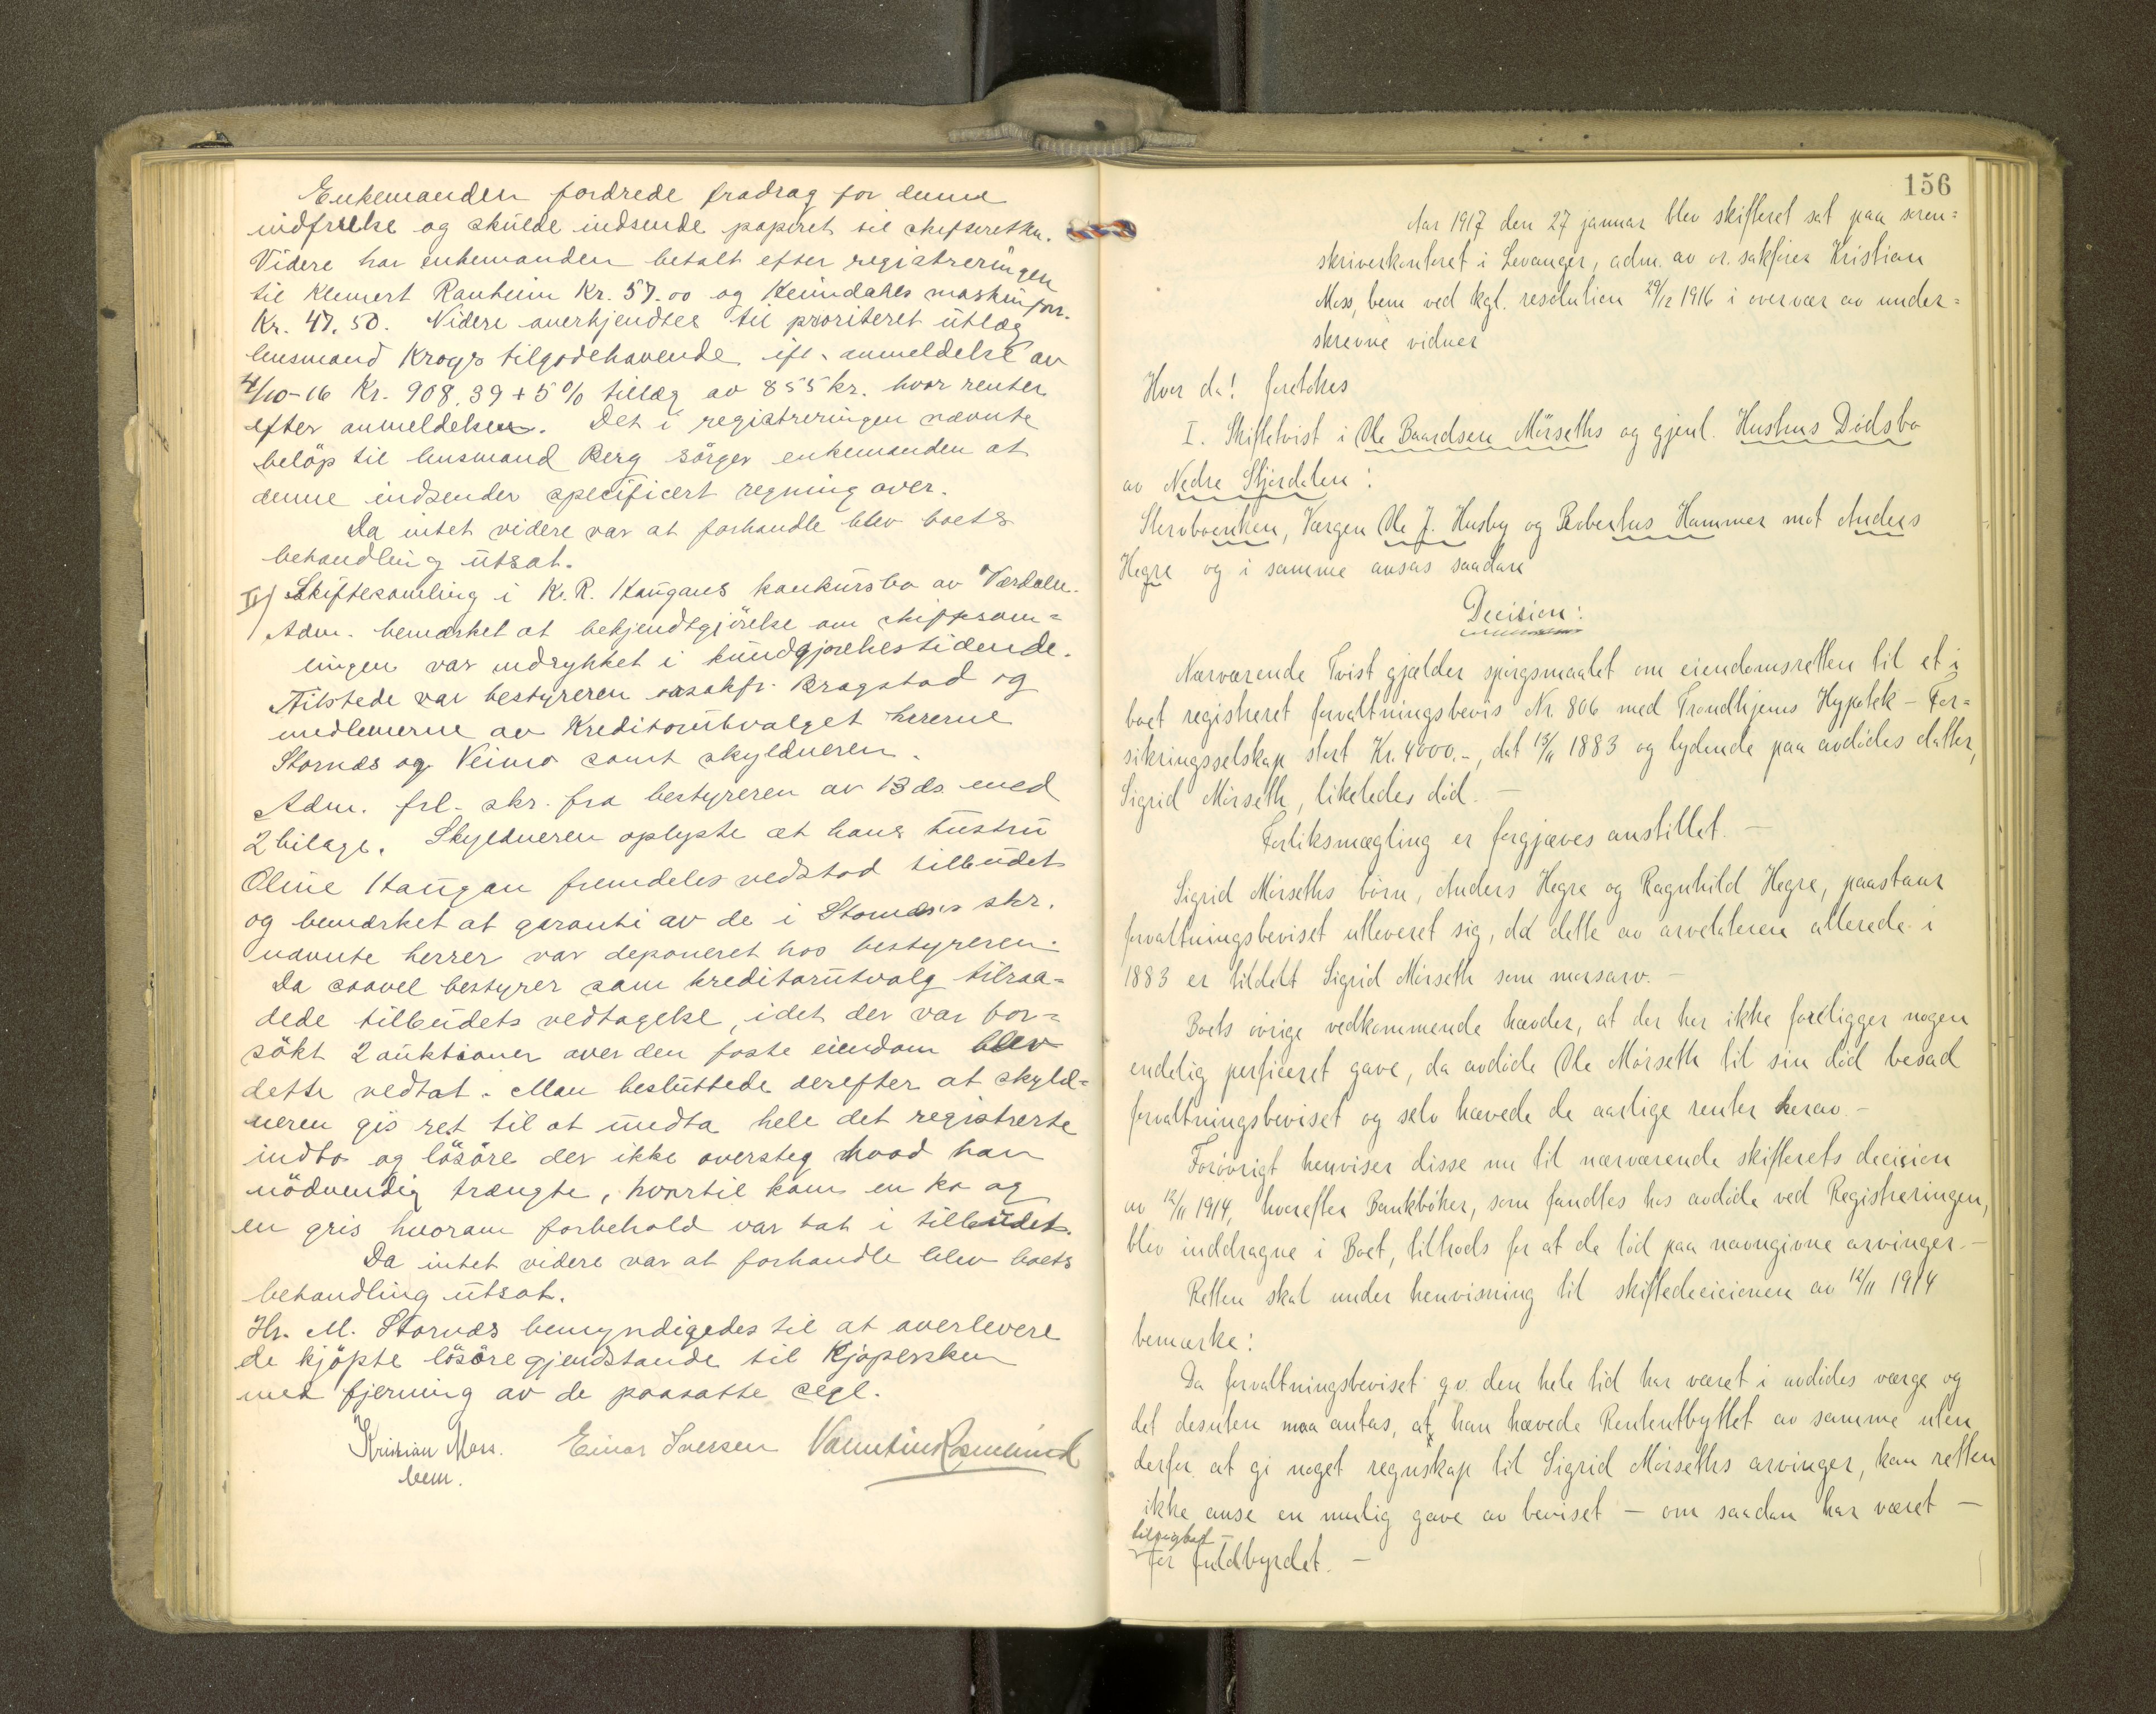 Enkemanden fordrede fradrag for denne
indfrielse og skulde indsende papiret til skifteretten.
Videre har enkemanden betalt efter registreringen
til Klemert Ranheim Kr. 57.00 og Keimdahls maskinforr.
Kr. 47.50. Videre anerkjendtes til prioriteret utlæg
lensmand Krogs tilgodehavende ifl. anmeldelse av
4/10-16 Kr. 908.39 + 5% tillæg av 855 kr. hvor renter
efter anmeldelsen. Det i registreringen nævnte
beløp til lensmand Berg sörger enkemanden at
denne indsender specificert regning over.
Da intet videre var at forhandle blev boets
behandling utsat.
II) Skiftesamling i K. R. Haugans konkursbo av Værdalen.
Adm. bemærket at bekjendtgjörelse om skiftesam=
lingen var indrykket i kundgjørelsestidende.
Tilstede var bestyreren orsakfr. Bragstad og
medlemerne av Kreditorutvalget herrerne
Stornæs og Veimo samt skyldneren.
Adm. frl. skr. fra bestyreren av 13 ds. med
2 bilage. Skyldneren oplyste at hans hustru
Oline Haugan fremdeles vedstod tilbudet
og bemærket at garanti av de i Stornæs's skr.
nævnte herrer var deponeret hos bestyreren.
Da saavel bestyrer som kreditorutvalg tilraa=
dede tilbudets vedtagelse, idet der var for=
sökt 2 auktioner over den faste eiendom blev
dette vedtat. Man besluttede derefter at skyld=
neren gis ret til at undta hele det registrerte
indbo og lösöre der ikke oversteg hvad han
nödvendig trængte, hvortil kom en ko og
en gris hvorom forbehold var tat i tilbudet.
Da intet videre var at forhandle blev boets
behandling utsat.
Hr. M. Stornæs bemyndigedes til at overlevere
de kjöpte lösöregjenstande til Kjøpersken
med fjerning av de paasatte segl.
Kristian Moss. Einar Iversen Valentin Rosmund
bem.
156
Aar 1917 den 27 januar blev skifteret sat paa soren=
skriverkontoret i Levanger, adm. av or. sakfører Kristian
Moss, bem ved kgl. resolution 29/12 1916 i overvær av under=
skrevne vidner
Hvor da! foretokes
I. Skiftetvist i Ole Baardsen Mörseths og gjenl. Hustrus Dödsbo
av Nedre Stjørdalen:
Stervboenken, Værgen Ole J. Husby og Robertus Hammer mot Anders
Hegre og i samme avsas saadan
Decision:
Nærværende Tvist gjælder spörgsmaalet om eiendomsretten til et i
boet registreret forvaltningsbevis Nr. 806 med Trondhjems Hypotek - For=
sikringsselskap stort Kr. 4000.-, dat 13/11 1883 og lydende paa avdödes datter,
Sigrid Mörseth, likeledes död. -
Forliksmægling er forgjæves anstillet. -
Sigrid Mörseths börn, Anders Hegre og Ragnhild Hegre, paastaar
forvaltningsbeviset utleveret sig, da dette av arveladeren allerede i
1883 er tildelt Sigrid Mörseth som morsarv. -
Boets övrige vedkommende hævder, at der her ikke foreligger nogen
endelig perficeret gave, da avdöde Ole Mörseth til sin död besad
forvaltningsbeviset og selv hævede de aarlige renter herav. -
Forövrigt henviser disse nu til nærværende skifterets decision
av 12/11 1914, hvorefter Bankböker, som fandtes hos avdöde ved Registreringen,
blev inddragne i Boet, tiltrods for at de löd paa navngivne arvinger. -
Retten skal under henvisning til skiftedecisionen av 12/11 1914
bemærke:
Da forvaltningsbeviset gv. den hele tid har været i avdödes værge og
det desuten maa antas, at han hævede Renteutbyttet av samme uten
derfor at gi noget regnskap til Sigrid Mörseths arvinger, kan retten
ikke anse en mulig gave av beviset - om saadan har været -
tilsigtet -
for fuldbyrdet. -